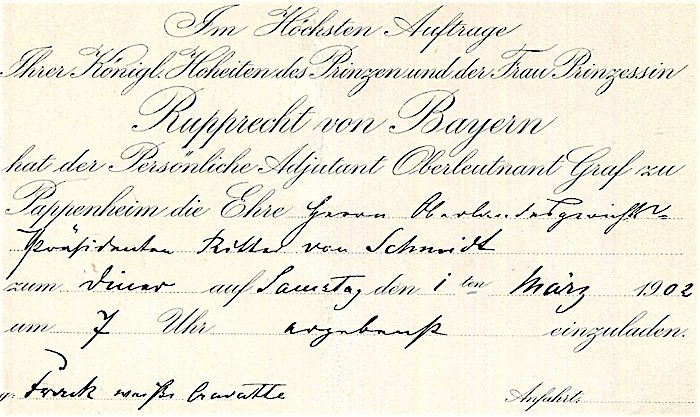 Im Höchsten Auftrage
Ihrer Königl. Hoheiten des Prinzen und der Frau Prinzessin
Rupprecht von Bayern
hat der Persönliche Adjutant Oberleutnant Graf zu
Pappenheim die Ehre Herrn Oberlandesgerichts-
Präsidenten Ritter von Schmidt
zum Diner auf Samstag den 1ten März 1902
um 7 Uhr ergebenst einzuladen.
Frack weiße Cravatte Anfahrt: